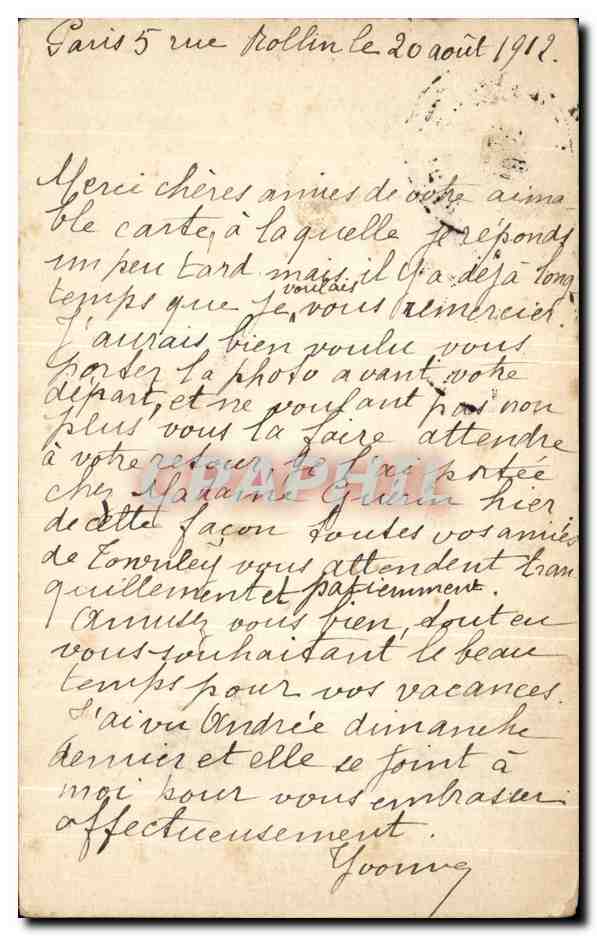 Paris 5 rue Rollin le 20 août 1912.
Merci chères amies de votre aima-
ble carte, à laquelle je réponds
un peu tard mais il y a déjà long
temps que je voulais vous remercier.
J'aurais bien voulu vous
porter la photo avant votre
départ, et ne voulant pas non
plus vous la faire attendre
à votre retour, je l'ai portée
chez Madame Guérin hier
de cette façon toutes vos amies
de Townley vous attendent tran
quillement et patiemment.
Amusez vous bien, tout en
vous souhaitant le beau
temps pour vos vacances.
J'ai vu Andrée dimanche
dernier et elle se joint à
moi pour vous embrasser
affectueusement.
Yvonne
CPAPHIL